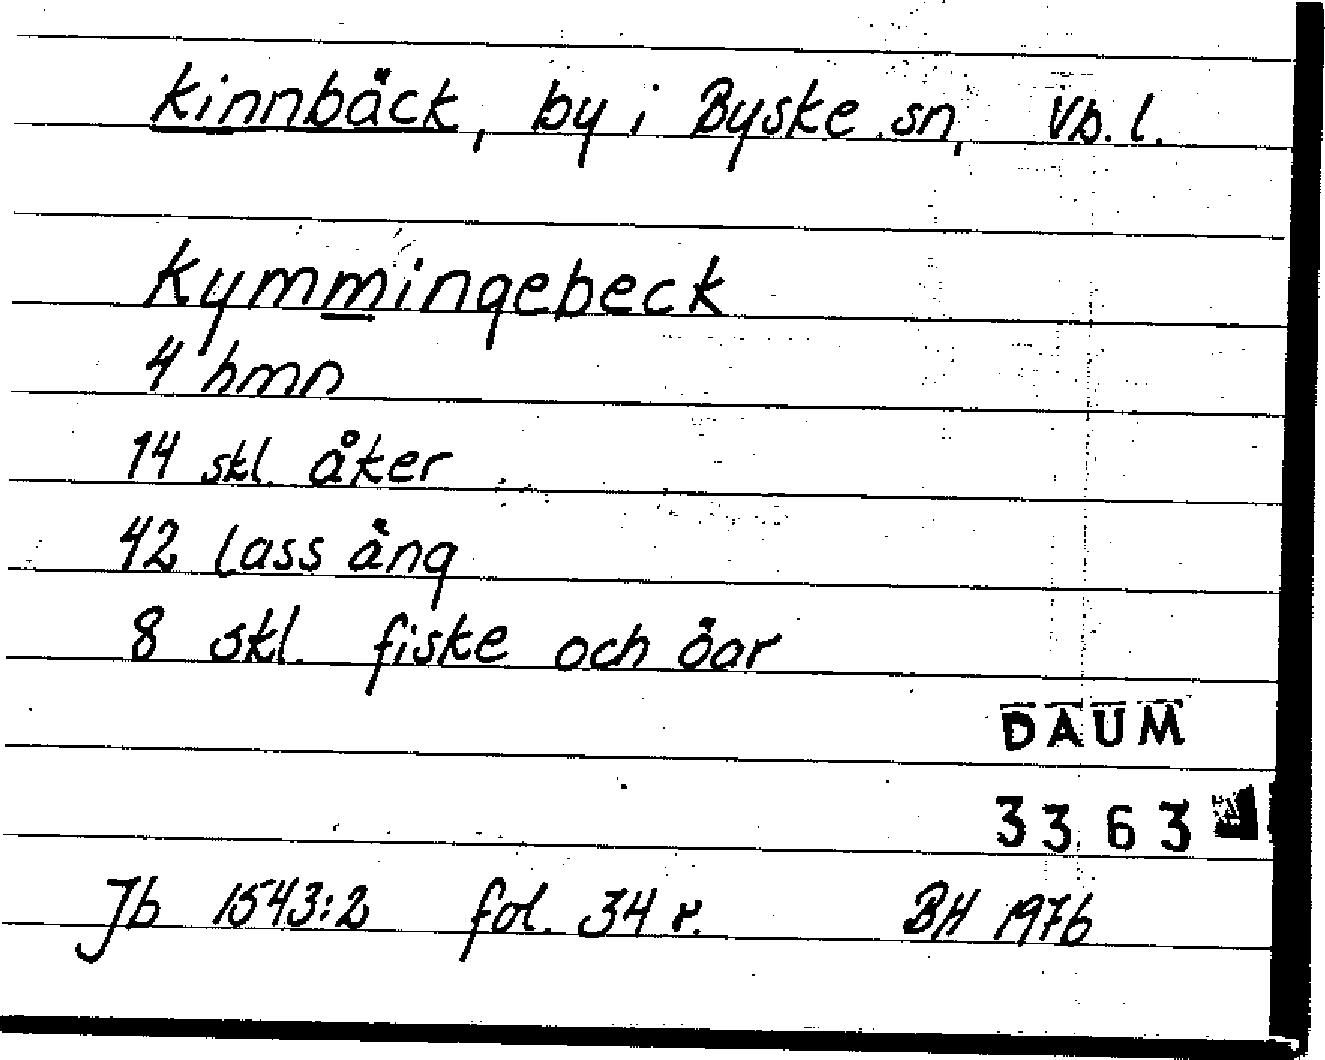 Kinnbäck, by i Byske sn, Vb. l.
Kymmingebeck
4 hmn
14 skl. åker
42 lass äng
8 skl. fiske och öar
DAUM
3363
Jb 1543:2 fol. 34 r. BH 1976